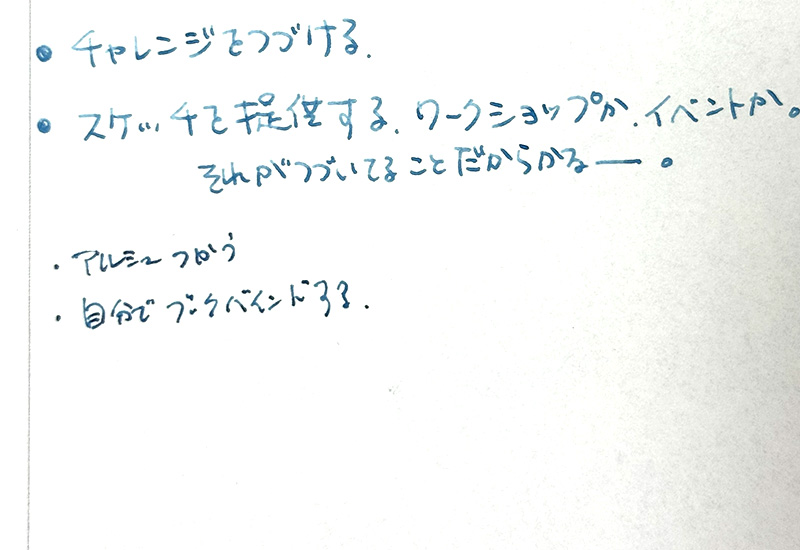 • チャレンジをつづける.
• スケッチを提供する. ワークショップか. イベントか。
それがつづいてることだからかるー。
・アルシュつかう
・自分でブックバインドする.